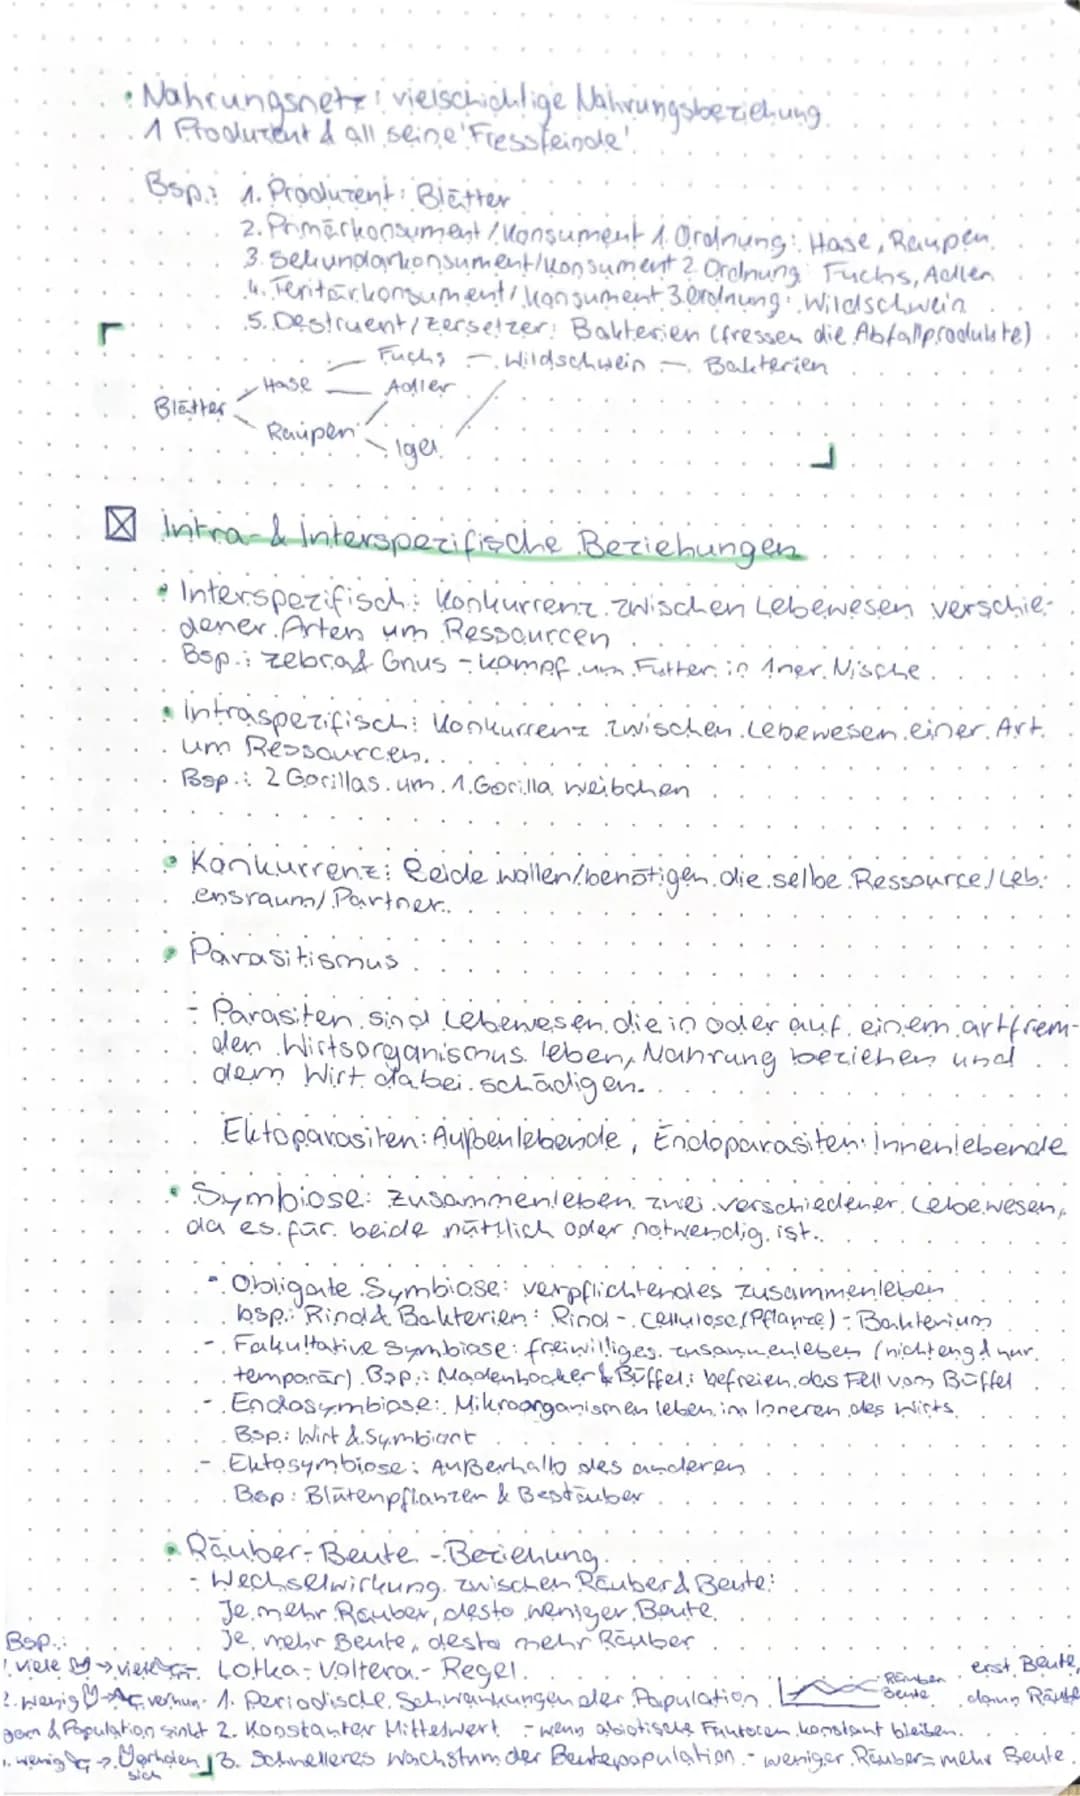 • Nahrungsnetz: vielschichtige Nahrungsbeziehung
1 Produzent & all seine 'Fressfeinde'.
Bsp.: 1. Produzent: Blätter
2. Primärkonsument/Konsument 1. Ordnung: Hase, Raupen
3. Sekundarkonsument/Konsument 2. Ordnung: Fuchs, Adler
4. Teritärkonsument/Konsument 3. Ordnung: Wildschwein
5. Destruent/Zersetzer: Bakterien (fressen die Abfallprodukte)
Fuchs — Wildschwein — Bakterien
Hase — Adler
Blätter
Raupen
Igel
☒ Intra- & Interspezifische Beziehungen
• Interspezifisch: Konkurrenz zwischen Lebewesen verschie-
dener Arten um Ressourcen
Bsp.: Zebra & Gnus - Kampf um Futter in 1ner Nische
• Intraspezifisch: Konkurrenz zwischen Lebewesen einer Art
um Ressourcen.
Bsp.: 2 Gorillas um 1 Gorilla weibchen
• Konkurrenz: Beide wollen/benötigen die selbe Ressource/Leb-
ensraum/Partner.
• Parasitismus
- Parasiten sind Lebewesen, die in oder auf einem artfrem-
den Wirtsorganismus leben, Nahrung beziehen und
dem Wirt dabei schädigen.
Ektoparasiten: Außenlebende, Endoparasiten: Innenlebende
• Symbiose: Zusammenleben zwei verschiedener Lebewesen,
da es für beide nützlich oder notwendig ist.
- Obligate Symbiose: verpflichtendes Zusammenleben
bsp.: Rind & Bakterien: Rind - Cellulose (Pflanze) - Bakterium
- Fakultative Symbiose: freiwilliges zusammenleben (nicht eng & nur
temporär) Bsp.: Madenhocker & Büffel: befreien das Fell vom Büffel
- Endosymbiose: Mikroorganismen leben im Inneren des Wirts
Bsp.: Wirt & Symbiont
- Ektosymbiose: Außerhalb des anderen
Bsp: Blütenpflanzen & Bestäuber
• Räuber-Beute-Beziehung
- Wechselwirkung zwischen Räuber & Beute:
Je mehr Räuber, desto weniger Beute.
Je mehr Beute, desto mehr Räuber
Lotka-Voltera-Regel
1. Periodische Schwankungen der Population
2. Konstanter Mittelwert - wenn abiotische Faktoren konstant bleiben.
3. Schnelleres Wachstum der Beutepopulation - weniger Räuber = mehr Beute.
Räuber
Beute
erst Beute,
dann Räube
Bsp.:
1. viele → viele
2. wenig → verhun-
gern & Population sinkt
wenig → erholen
sich